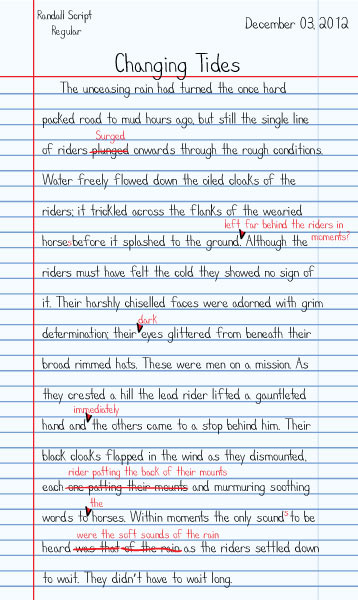 Randall Script
Regular
December 03, 2012
Changing Tides
The unceasing rain had turned the once hard
packed road to mud hours ago, but still the single line
Surged
of riders plunged onwards through the rough conditions.
Water freely flowed down the oiled cloaks of the
riders; it trickled across the flanks of the wearied
left far behind the riders in
moments?
horses before it splashed to the ground. Although the
riders must have felt the cold they showed no sign of
it. Their harshly chiselled faces were adorned with grim
dark
determination; their eyes glittered from beneath their
broad rimmed hats. These were men on a mission. As
they crested a hill the lead rider lifted a gauntleted
immediately
hand and the others came to a stop behind him. Their
black cloaks flapped in the wind as they dismounted,
rider patting the back of their mounts
each one patting their mounts and murmuring soothing
the
words to horses. Within moments the only sounds to be
were the soft sounds of the rain
heard was that of the rain as the riders settled down
to wait. They didn't have to wait long.